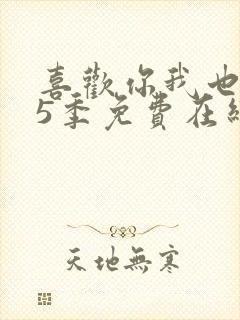 喜歡你我也
5季免費在線
天地無寒